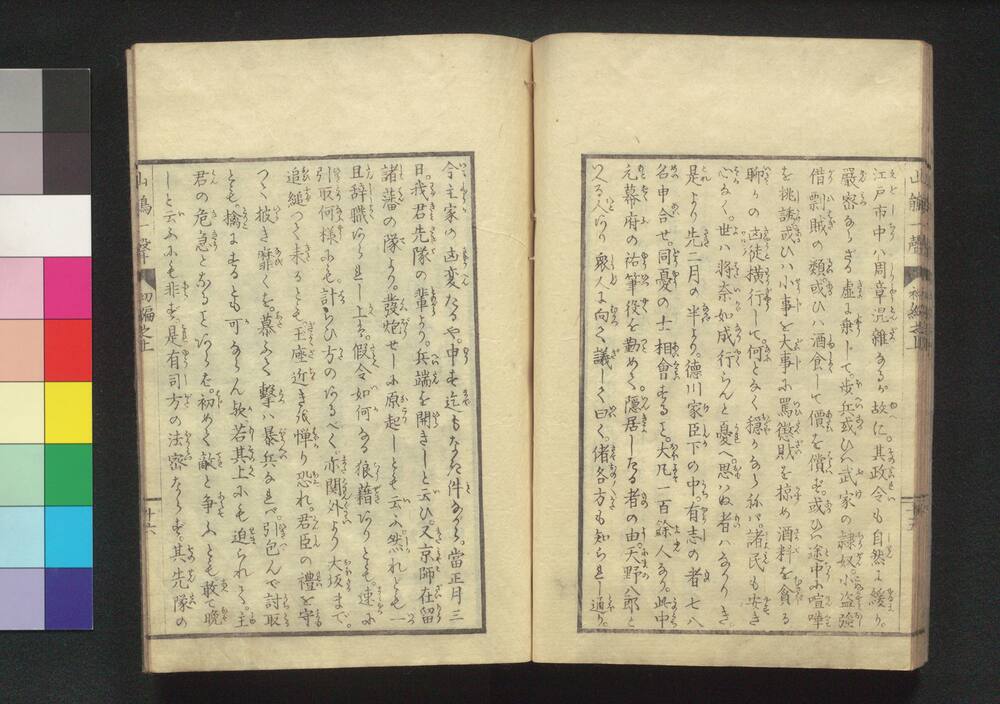 江戸市中ハ周章混雑なるが故に。其政令も自然と緩り。
嚴密ならざる虚に乗じて歩兵或ひハ武家の隷奴。小盗
借剽賊の類或ひハ酒食して價を償ず。或ひハ途中に喧嘩
を挑誘或ひハ小事を大事に罵懲財を掠め酒料を貪る
聊かの凶徒横行して何となく穏かならねバ。諸民も安き
心なく。世ハ将奈如成行らんと憂へ思はぬ者ハなかりき。
是より先二月の半より。徳川家臣下の中。有志の者七八
名申合せ。同憂の士相會するに。大凡一百餘人なり。此中
元幕府の祐筆役を勤めて。隠居したる者の由天野八郎と
いへる人あり衆人に向て議して曰く。偖各方も知られし通り。
今主家の凶変たるや。申す迄もなき件ながら。當正月三
日。我君先隊の輩より。兵端を開きしと云ひ。又京師在留
諸藩の隊より。發炮せしに原起しとも云ふ然れども一
且辞職あられし上ハ。假令如何なる狼藉ありとも。速に
引取何様にも計らひ方のあるべく。亦関外より大坂まで。
追縋つて来るとも。王座近きを憚り恐れ。君臣の禮を守
つて。披き靡くを。慕ふて撃ハ暴兵なれバ。引包んで討取
とも。擒にするとも可ならん歟若其上にも迫られて。主
君の危急となるにあらバ。初めて敵と争ふとも敢て晩
しと云ふにも非ず。是有司方の法密ならず。其先隊の
山鵑一聲
初編之上
廿六